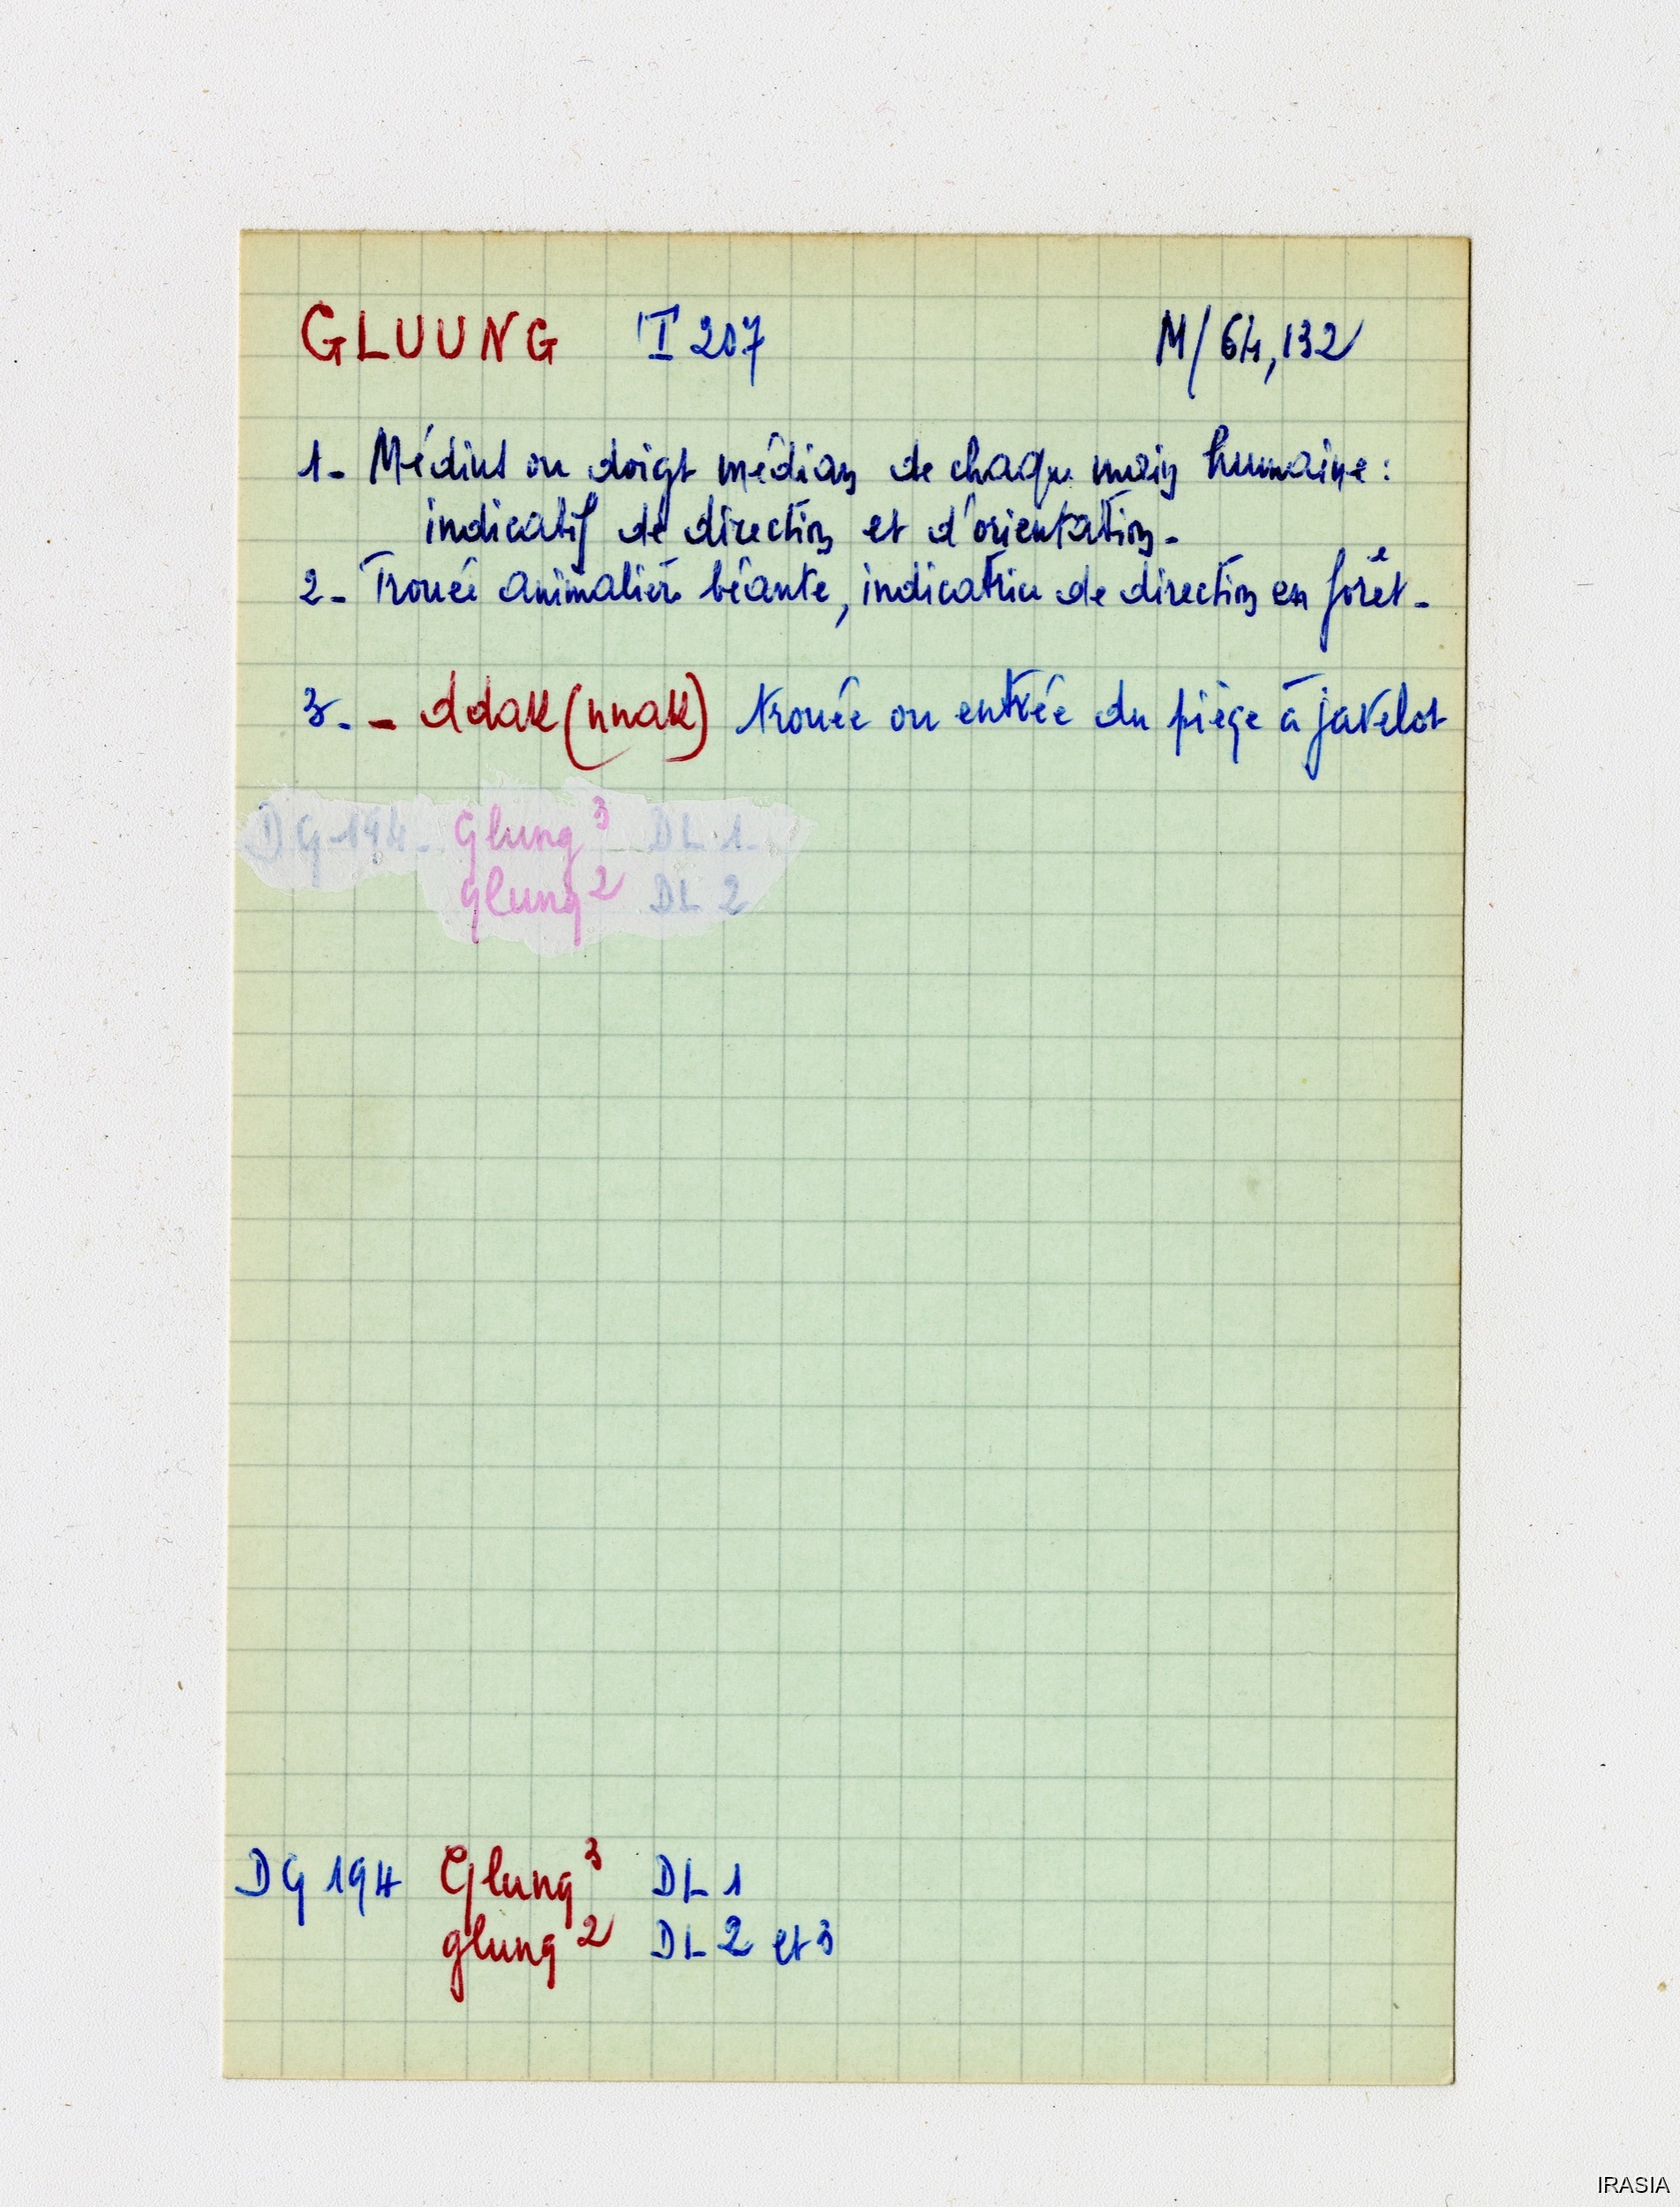 GLUUNG I 207 M/64,132
1- Médius ou doigt médian de chaque main humaine :
indicatif de direction et d'orientation -
2- Trouée animalière béante, indicatrice de direction en forêt -
3- - ddak (nnak) trouée ou entrée du piège à javelot
DG 194- Glung³ DL 1-
glung² DL 2
DG 194 Glung³ DL 1
glung² DL 2 et 3
IRASIA